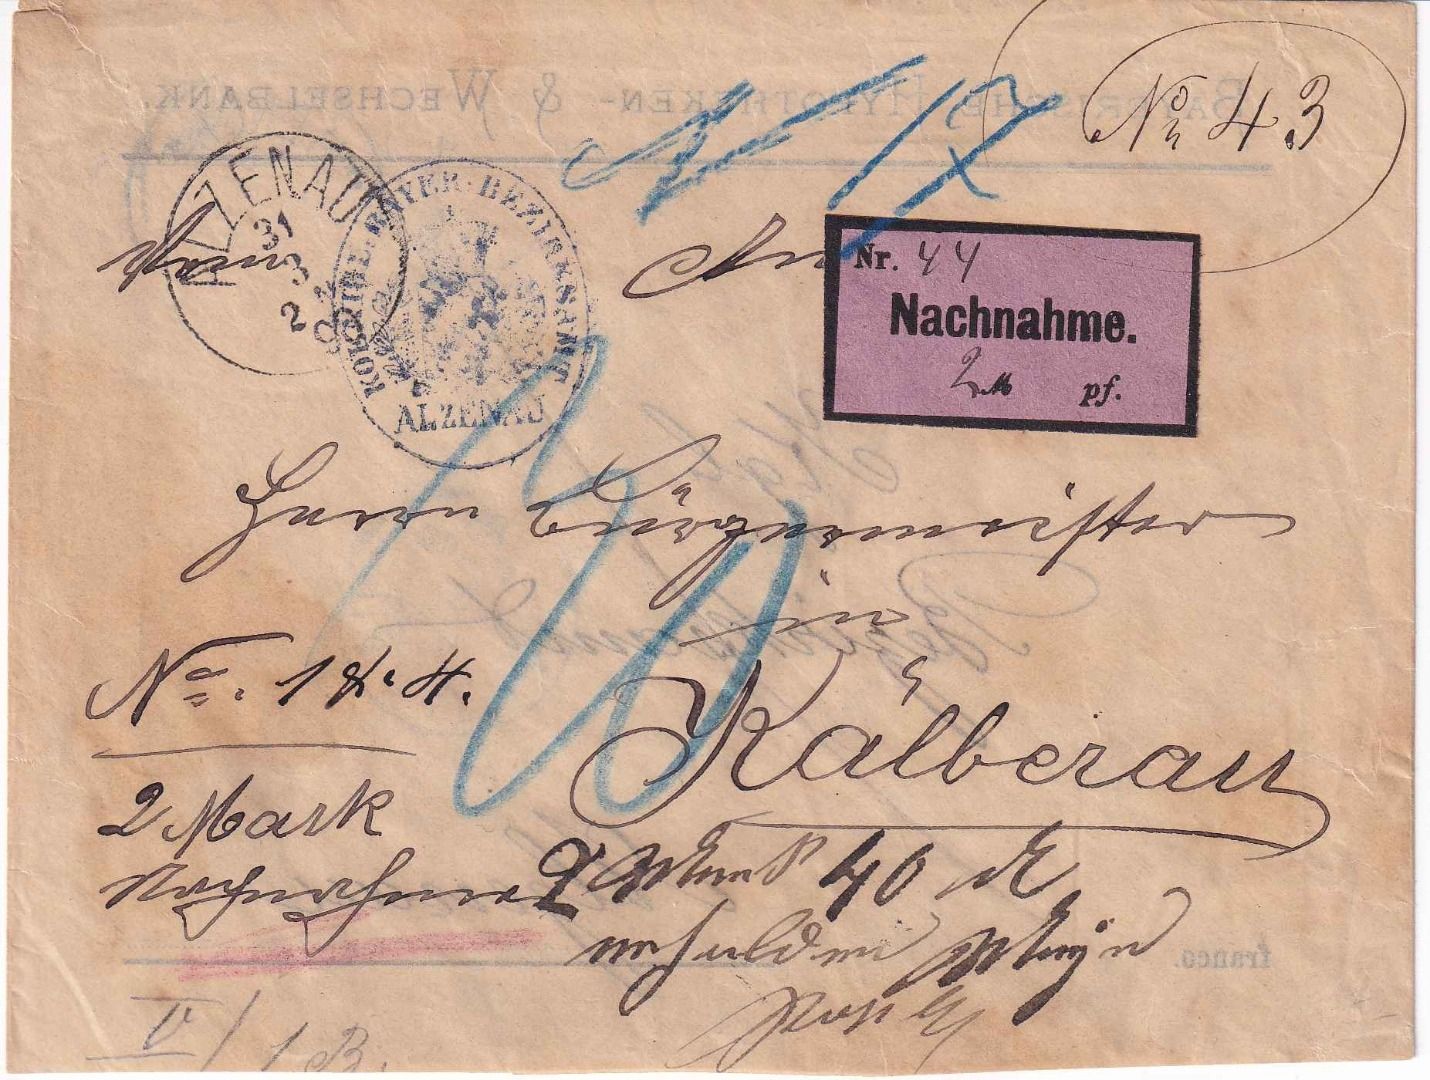 BAYERISCHE HYPOTHEKEN- & WECHSELBANK.
No 43
ALZENAU
31
3
2
KÖNIGL. BAYER. BEZIRKSAMT
ALZENAU
Vom
An
Nr. 44
Nachnahme.
2 M pf.
Herrn Bürgermeister
in
Kälberau
No. 184.
2 Mark
Nachnahme
2 Mark 40 d
erhalten
franco.
V/
1 B.